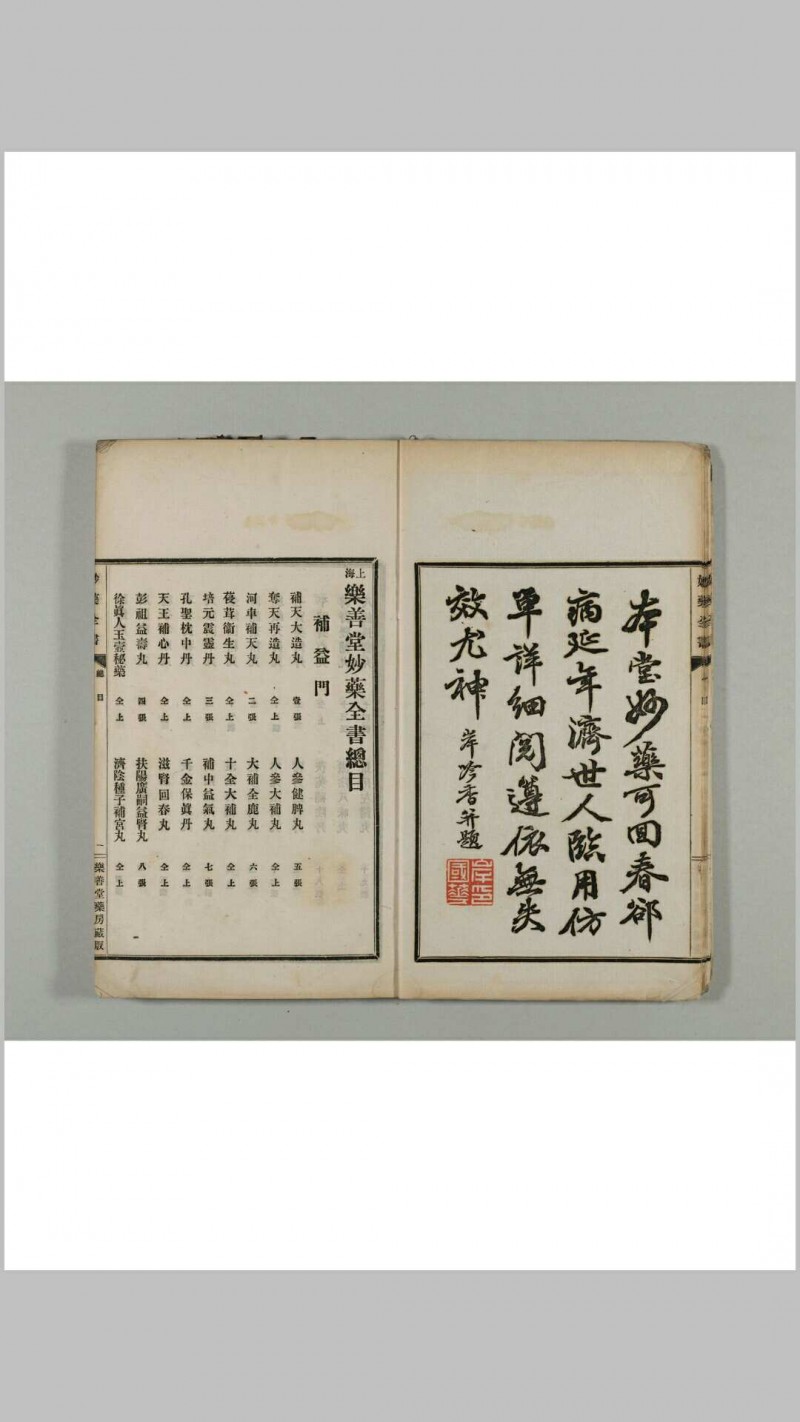 妙藥全書 目
本堂妙藥可回春卻
病延年濟世人臨用仿
單詳細閱遵依無失
效尤神 岸吟香并題
岸印
國華
上海樂善堂妙藥全書總目
補益門
補天大造丸 壹張 人參健脾丸 五張
奪天再造丸 仝上 人參大補丸 仝上
河車補天丸 二張 大補全鹿丸 六張
葠茸衞生丸 仝上 十全大補丸 仝上
培元震靈丹 三張 補中益氣丸 七張
孔聖枕中丹 仝上 千金保眞丹 仝上
天王補心丹 仝上 滋腎回春丸 仝上
彭祖益壽丸 四張 扶陽廣嗣益腎丸 八張
徐眞人玉壺秘藥 仝上 濟陰種子補宮丸 仝上
妙藥全書 總目 一 樂善堂藥房藏版